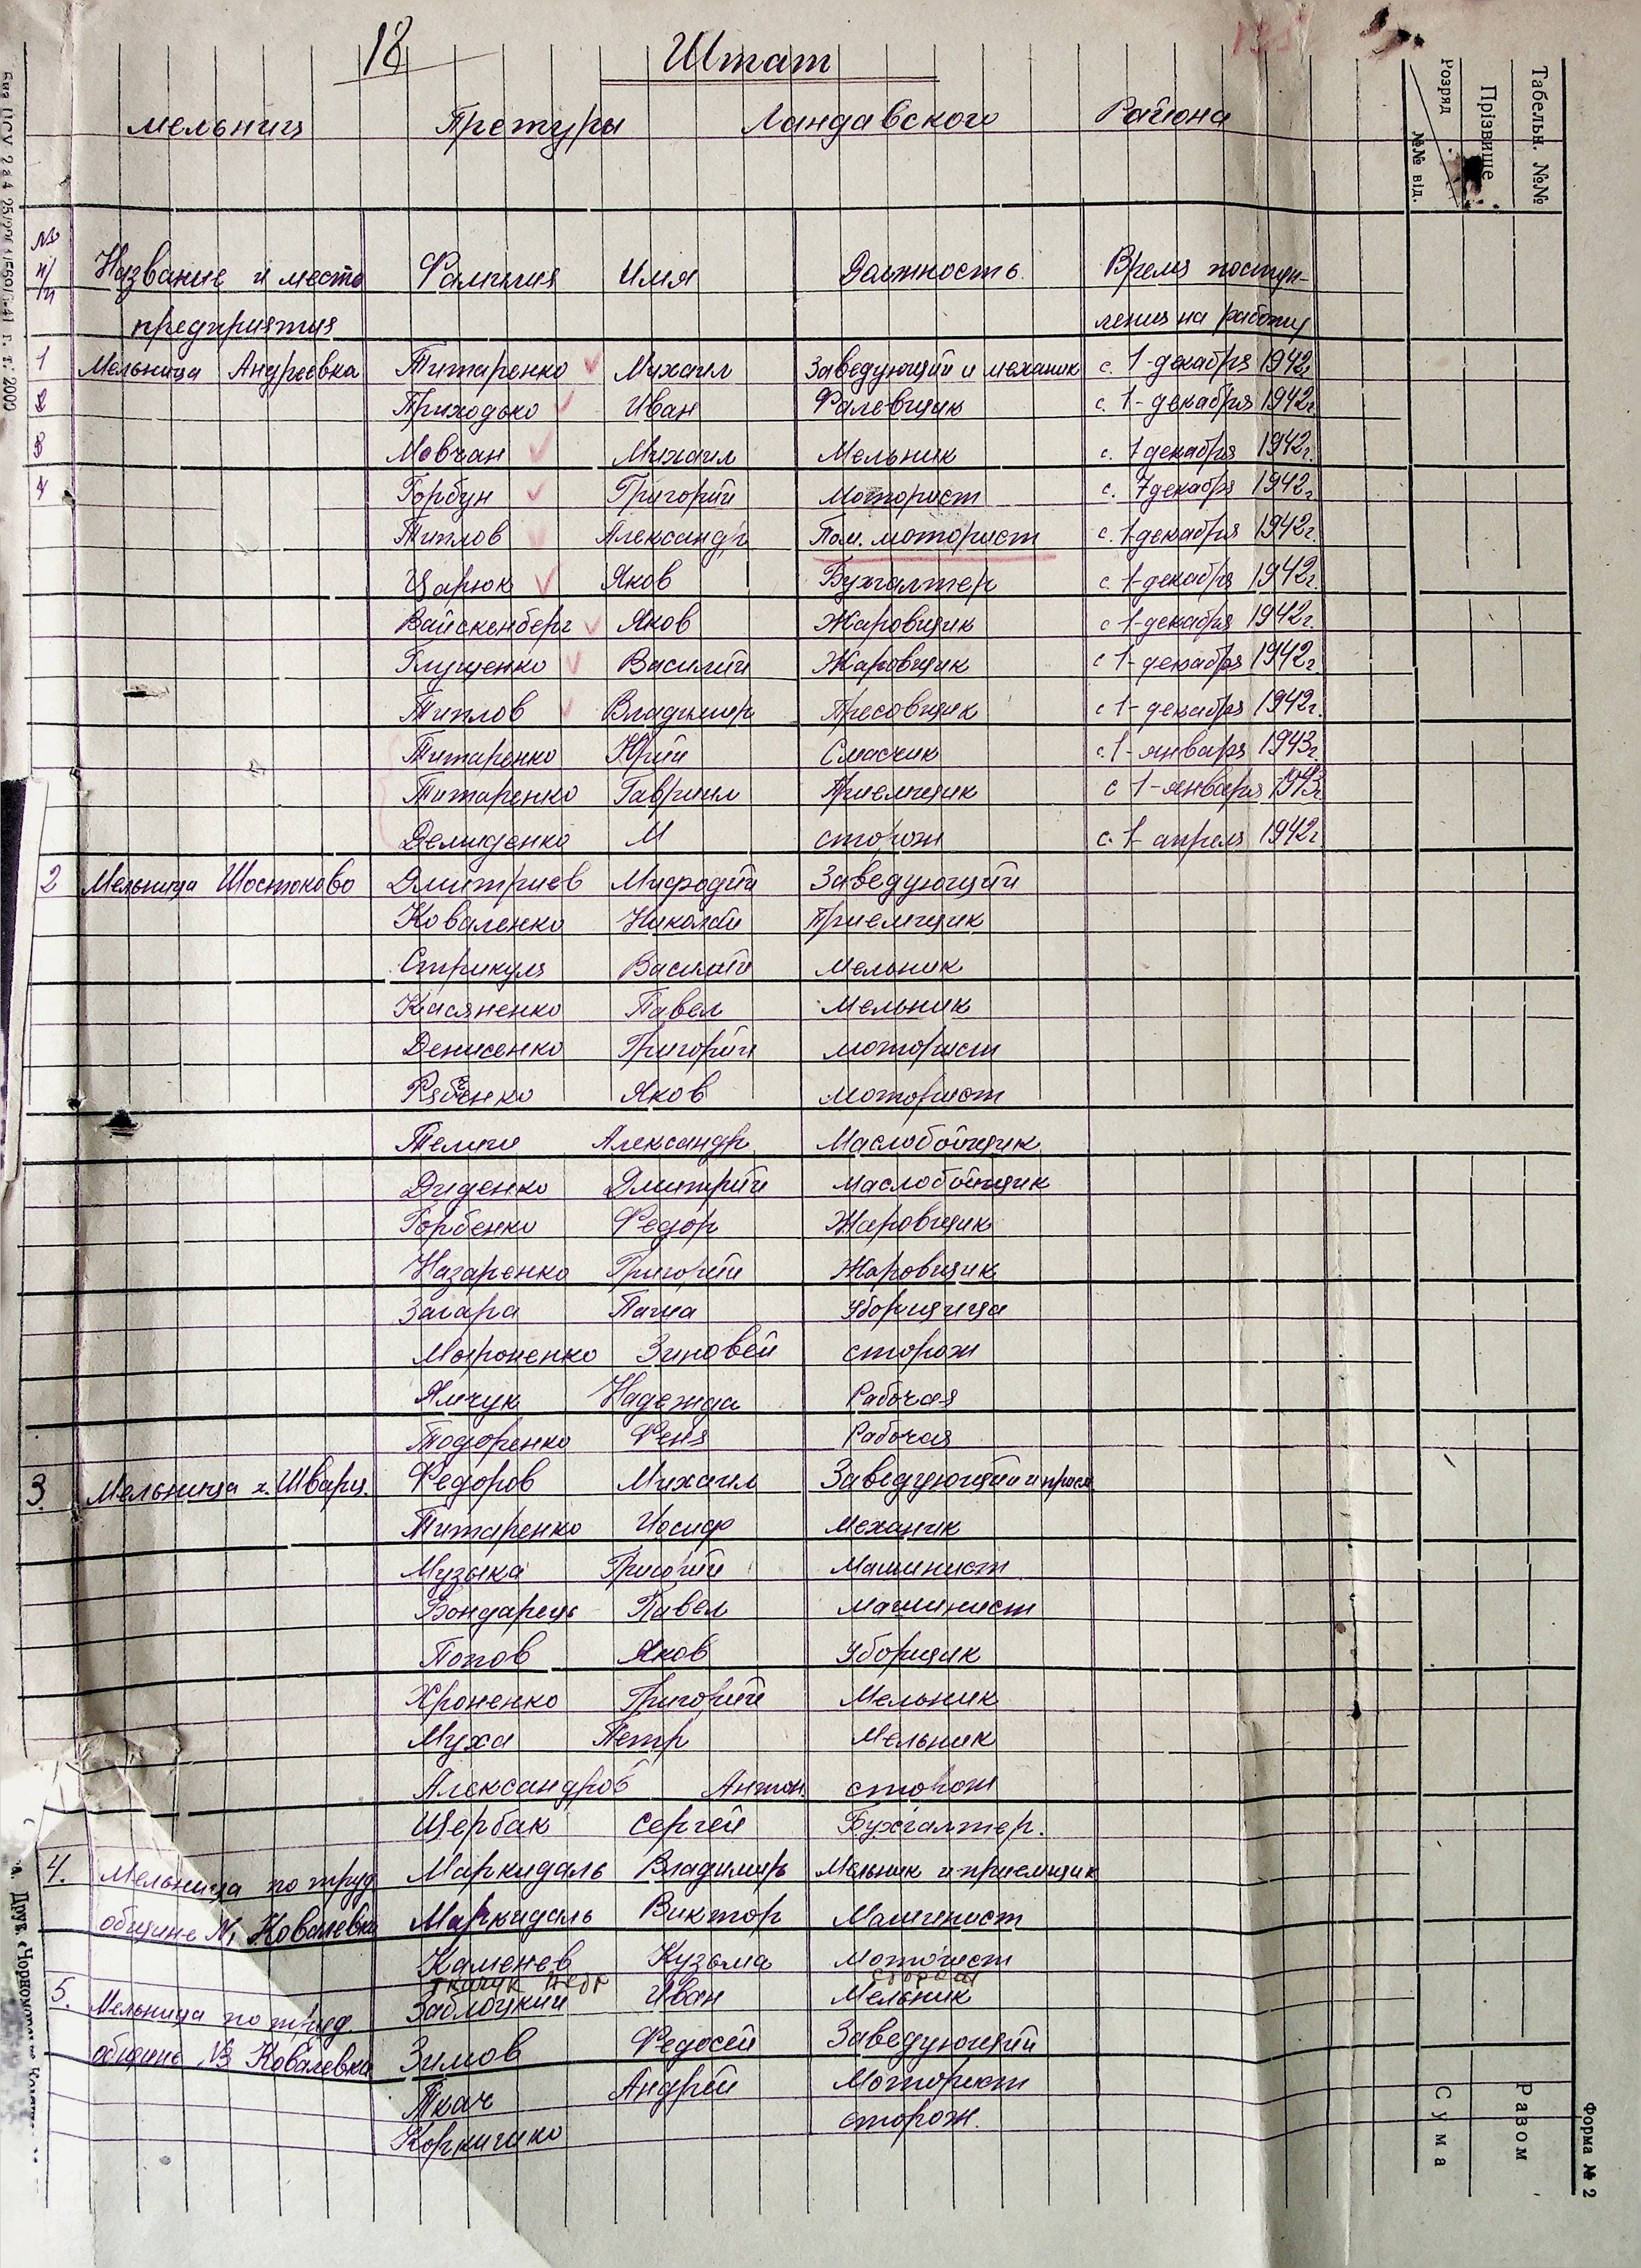 18
Штат
мельниц Претуры Ландавского Района
№ п/п Название и место Фамилия Имя Должность Время поступ-
предприятия ления на работу
1 Мельница Андреевка Титаренко Михаил Заведующий и механик с. 1-декабря 1942г.
2 Приходько Иван Фалевщик с. 1-декабря 1942г.
3 Мовчан Михаил Мельник с. 1 декабря 1942г.
4 Горбун Григорий Моторист с. 7 декабря 1942г.
Типлов Александр Пом. моторист с. 1-декабря 1942г.
Царюк Яков Бухгалтер с. 1-декабря 1942г.
Вайскенберг Яков Жаровщик с 1-декабря 1942г.
Глущенко Василий Жаровщик с 1-декабря 1942г.
Типлов Владимир Пресовщик с 1-декабря 1942г.
Титаренко Юрий Смасчик с. 1-января 1943г.
Титаренко Гавриил Приемщик с 1-января 1943г.
Демиденко М сторож с. 1 апреля 1942г.
2 Мельница Шостаково Дмитриев Мифодий Заведующий
Коваленко Николай Приемщик
Стрикуля Василий Мельник
Касяненко Павел Мельник
Денисенко Григорий моторист
Рябенко Яков моторист
Александр Маслобойщик
Диденко Дмитрий маслобойщик
Горбенко Федор Жаровщик
Назаренко Григорий Жаровщик
Загара Паша Уборщица
Мироненко Зиновей сторож
Ямчук Надежда Рабочая
Тодоренко Феня Рабочая
3. Мельница х. Шварц. Федоров Михаил Заведующий и прием
Титаренко Иосиф Механик
Музыка Григорий Машинист
Бондарець Павел машинист
Попов Яков Уборщик
Хроненко Григорий Мельник
Муха Петр Мельник
Александров Антон. сторож
Щербак Сергей Бухгалтер.
4. Мельница по труд Маркидаль Владимир Мельник и приемщик
общине №1 Ковалевка Маркидаль Виктор Машинист
Каменев Кузьма Моторист
Ткачук Петр сторож
5. Мельница по труд. Заблоцкий Иван Мельник
общине №3 Ковалевка Зимов Федосей Заведующий
Ткач Андрей Моторист
сторож.
Табельн. №№
Прізвище
Розряд
№№ від.
Разом
Сума
Форма № 2